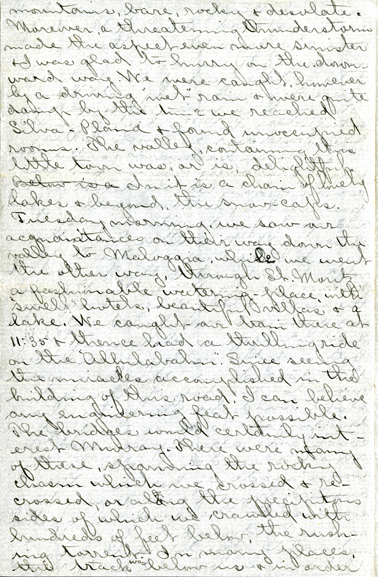 mountains, bare, rocky & desolate.
Moreover, a threatening thunderstorm
made the aspect even more sinister
& I was glad to hurry on the down-
ward way. We were caught, however
by a driving "wet" rain & were quite
damp by the time we reached
Silva-Pland & found unoccupied
rooms. The valley containing this
little town was, or is, delightful
below is a In it is a chain of lovely
lakes & beyond, the snow caps.
Tuesday morning, we saw our
acquaintances on their way down the
valley to Maloggia, while we went
the other way, through St. Moritz
a fashionable watering-place, with
swell hotels, beautiful villas & a
lake. We caught our train there at
11:35 & thence had a thrilling ride
on the "Albulabahn". Since seeing
the miracles accomplished in the
building of this road, I can believe
any engineering feat possible.
The bridges would certainly int-
erest Murray. There were many
of these, spanning the rocky
chasm which we crossed & re-
crossed, or along the precipitous
sides of which we crawled with
hundreds of feet below, the rush-
ing torrent. In many places,
the track was below us & in order